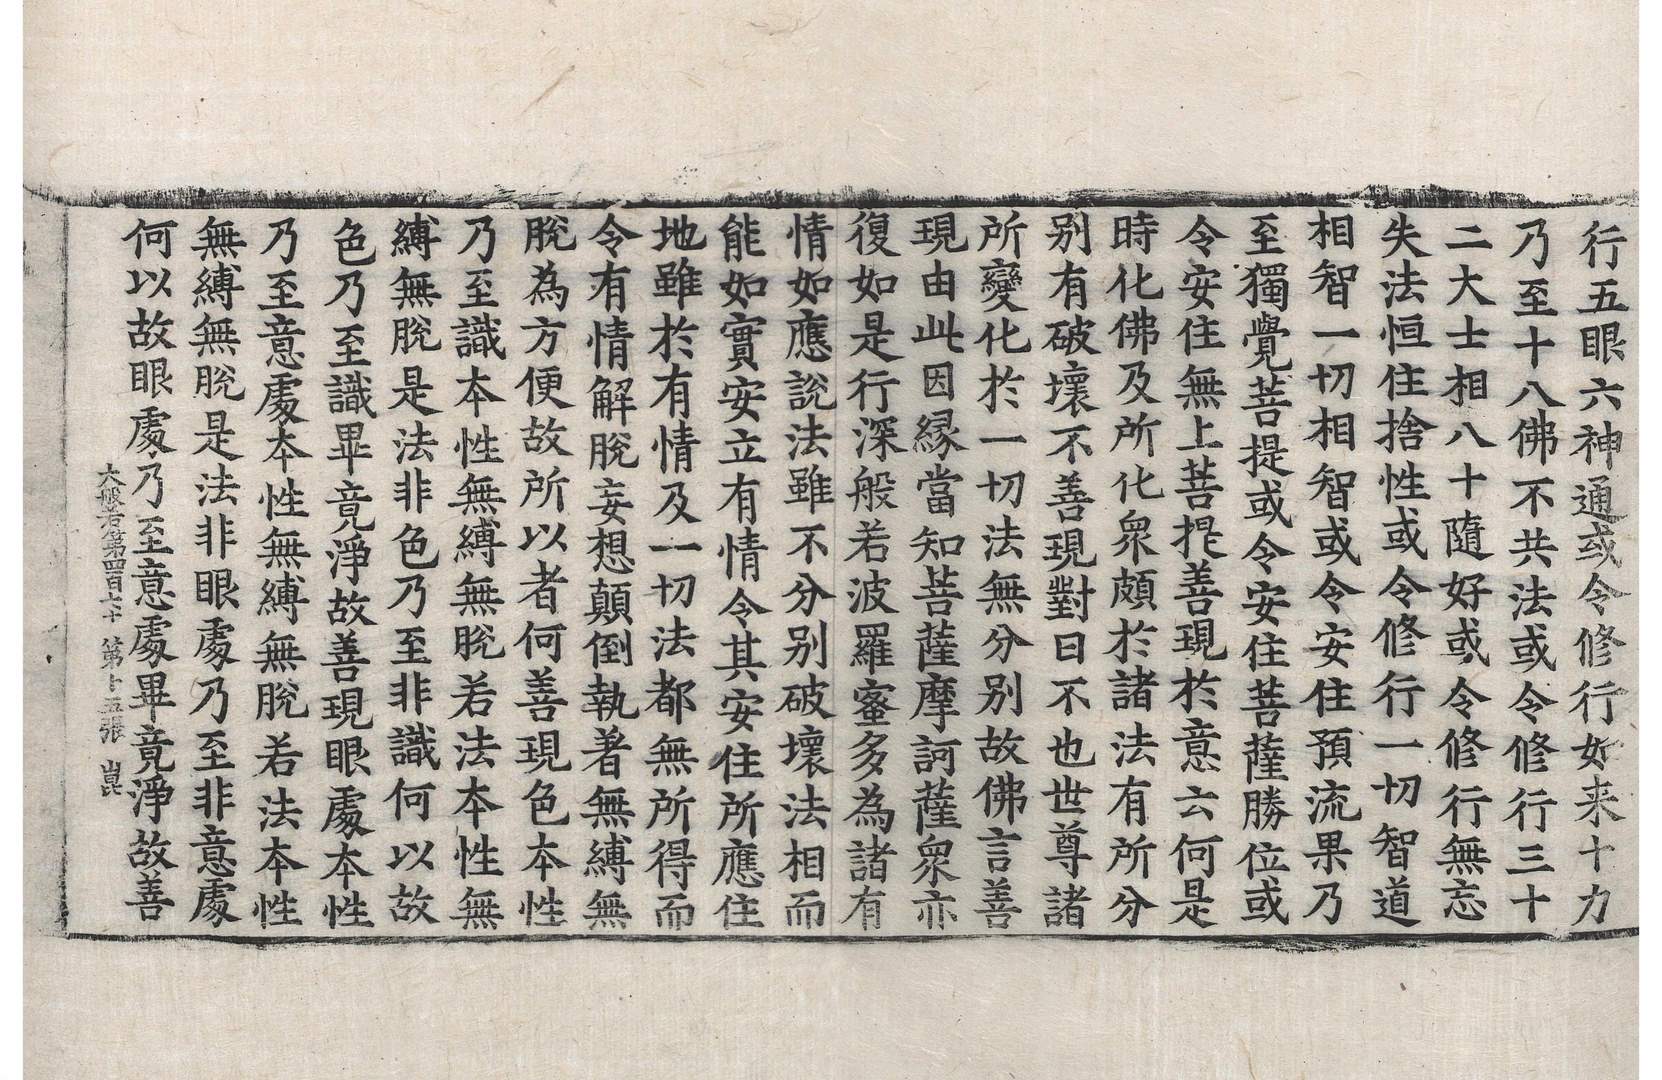 行五眼六神通或令修行如来十力
乃至十八佛不共法或令修行三十
二大士相八十隨好或令修行無忘
失法恒住捨性或令修行一切智道
相智一切相智或令安住預流果乃
至獨覺菩提或令安住菩薩勝位或
令安住無上菩提善現於意云何是
時化佛及所化衆頗於諸法有所分
别有破壞不善現對曰不也世尊諸
所變化於一切法無分别故佛言善
現由此因縁當知菩薩摩訶薩衆亦
復如是行深般若波羅蜜多為諸有
情如應說法雖不分别破壞法相而
能如實安立有情令其安住所應住
地雖於有情及一切法都無所得而
令有情解脫妄想顛倒執著無縛無
脫為方便故所以者何善現色本性
乃至識本性無縛無脫若法本性無
縛無脫是法非色乃至非識何以故
色乃至識畢竟淨故善現眼處本性
乃至意處本性無縛無脫若法本性
無縛無脫是法非眼處乃至非意處
何以故眼處乃至意處畢竟淨故善
大般若第四百六十 第十五張 崑